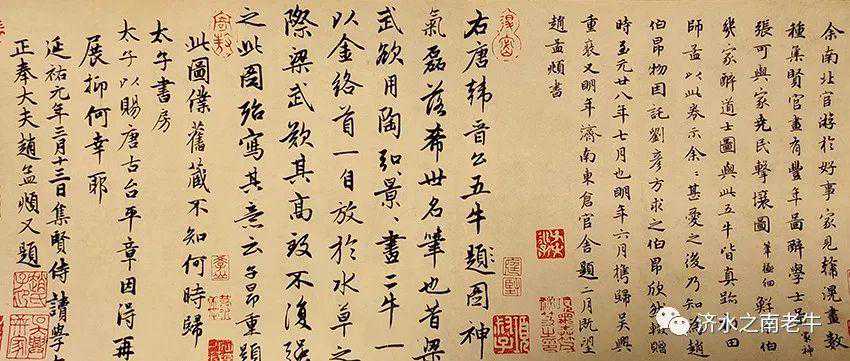 余南北官游於好事家見韓滉畫數
種集賢官畫有豐年圖醉學士神
張可與家堯民擊壤圖筆極細鮮伯
幾家醉道士圖與此五牛皆真跡田
師孟以此卷示余〻甚愛之後乃知為趙
伯昂物因託劉彥方求之伯昂欣然輟贈
時至元廿八年七月也明年六月攜歸吳興
重裝又明年濟南東倉官舍題二月既望
趙孟頫書
右唐韓晉公五牛題圖神
氣磊落希世名筆也昔梁
武欲用陶弘景〻畫二牛一
以金絡首一自放於水草之
際梁武歎其高致不復強
之此圖殆寫其意云子昂重題
此圖僕舊藏不知何時歸
太子書房
太子以賜唐古台平章因得再
展抑何幸耶
延祐元年三月十三日集賢侍讀學士
正奉大夫趙孟頫又題
济水之南老牛